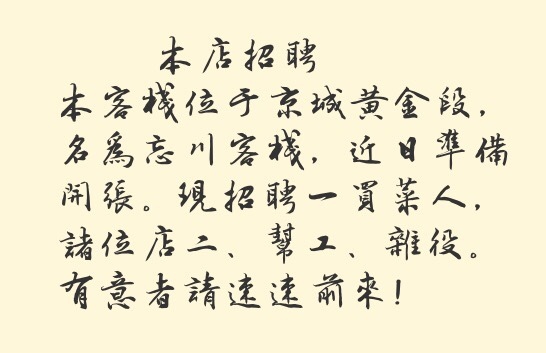 本店招聘
本客棧位于京城黃金段，
名爲忘川客棧，近日準備
開張。現招聘一買菜人，
諸位店二、幫工、雜役。
有意者請速速前來！